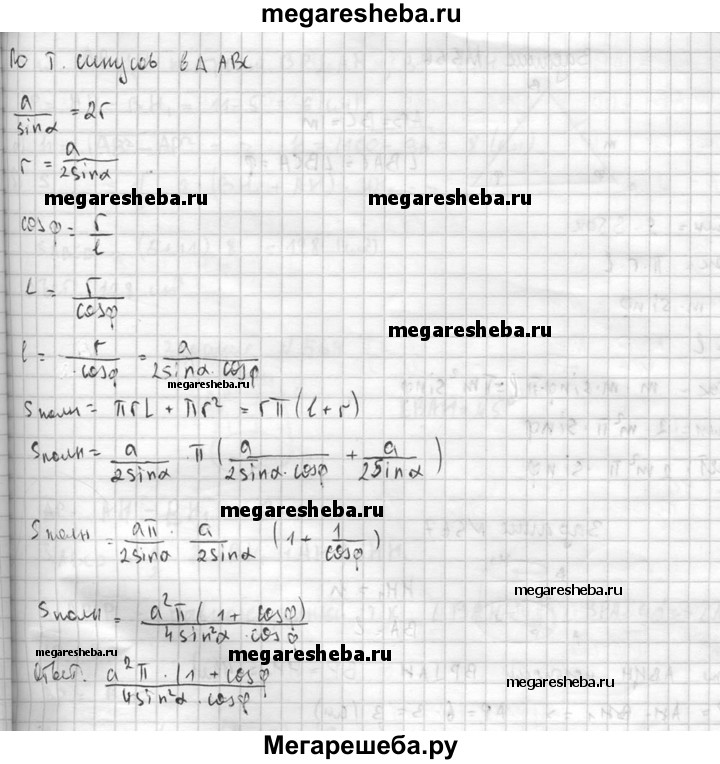 megaresheba.ru
По т. синусов в Δ ABC
a/sinα = 2r
r = a/2sinα
megaresheba.ru megaresheba.ru
cosφ = r/l
L = r/cosφ
megaresheba.ru
l = r/cosφ = a/2sinα·cosφ
megaresheba.ru
Sполн = πrL + πr² = rπ(l+r)
Sполн = a/2sinα · π (a/2sinα·cosφ + a/2sinα)
megaresheba.ru
Sполн = aπ/2sinα · a/2sinα (1 + 1/cosφ)
megaresheba.ru
Sполн = a²π(1 + cosφ)/4sin²α·cosφ
megaresheba.ru megaresheba.ru
Ответ. a²π·(1 + cosφ/4sin²α·cosφ
megaresheba.ru
Мегарешеба.ру